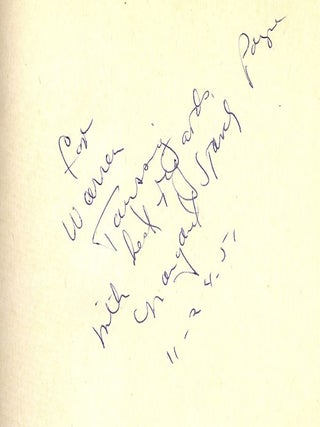 for
Warren
Tansony
with best regards.
Margaret Strand Payne
11-24-51